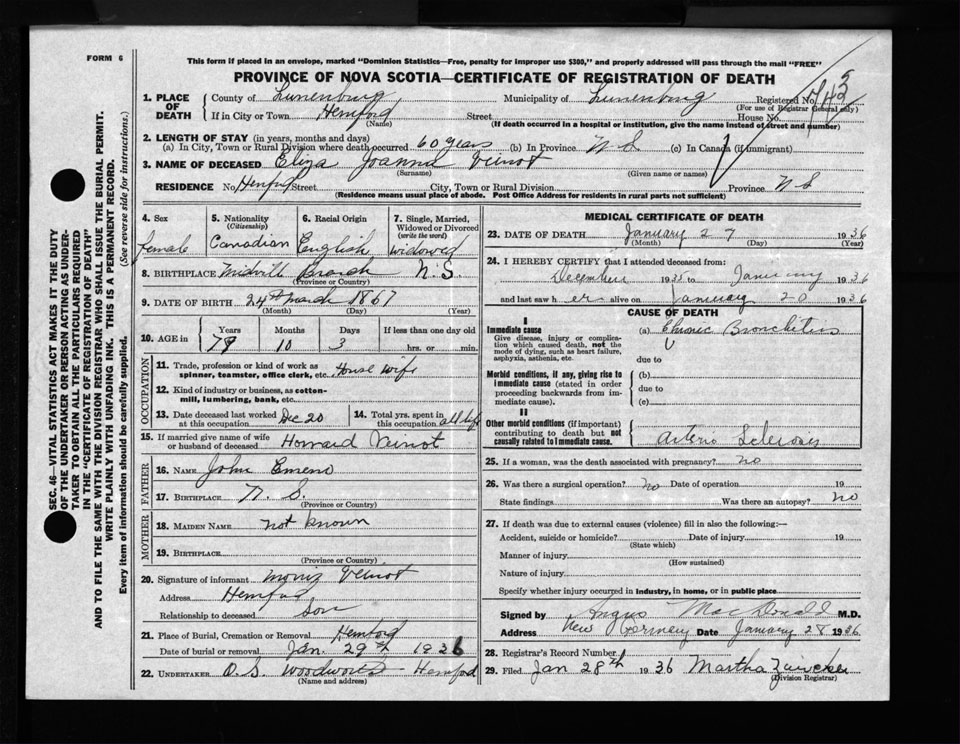 FORM 6
This form if placed in an envelope, marked "Dominion Statistics—Free, penalty for improper use $300," and properly addressed will pass through the mail "FREE"
PROVINCE OF NOVA SCOTIA—CERTIFICATE OF REGISTRATION OF DEATH
1. PLACE OF DEATH County of Lunenburg Municipality of Lunenburg Registered No.
(For use of Registrar General only)
If in City or Town Hemford Street House No.
(Name) (If death occurred in a hospital or institution, give the name instead of street and number)
2. LENGTH OF STAY (in years, months and days)
(a) In City, Town or Rural Division where death occurred 60 years (b) In Province N S (c) In Canada (if immigrant)
3. NAME OF DECEASED Eliza Joanna Veinot
(Surname) (Given name or names)
RESIDENCE No. Hemford Street City, Town or Rural Division Province N S
(Residence means usual place of abode. Post Office Address for residents in rural parts not sufficient)
4. Sex 5. Nationality 6. Racial Origin 7. Single, Married, Widowed or Divorced
(Citizenship) (write the word)
female Canadian English widowed
8. BIRTHPLACE Midville Branch N.S.
(Province or Country)
9. DATE OF BIRTH 24th March 1867
(Month) (Day) (Year)
10. AGE in Years Months Days If less than one day old
10 3 hrs. or min.
OCCUPATION
11. Trade, profession or kind of work as spinner, teamster, office clerk, etc. House wife
12. Kind of industry or business, as cotton-mill, lumbering, bank, etc.
13. Date deceased last worked at this occupation Dec 20 14. Total yrs. spent in this occupation all life
15. If married give name of wife or husband of deceased Howard Veinot
FATHER
16. NAME John Emeno
17. BIRTHPLACE N. S.
(Province or Country)
MOTHER
18. MAIDEN NAME not known
19. BIRTHPLACE
(Province or Country)
20. Signature of informant Veinot
Address Hemford
Relationship to deceased Son
21. Place of Burial, Cremation or Removal Hemford
Date of burial or removal Jan. 29th 1936
22. UNDERTAKER O. S. Woodworth Hemford
(Name and address)
MEDICAL CERTIFICATE OF DEATH
23. DATE OF DEATH January 27 1936
(Month) (Day) (Year)
24. I HEREBY CERTIFY that I attended deceased from:
December 1935 to January 1936
and last saw her alive on January 20 1936
CAUSE OF DEATH
I
Immediate cause (a) Chronic Bronchitis
Give disease, injury or complication which caused death, not the mode of dying, such as heart failure, asphyxia, asthenia, etc.
due to
Morbid conditions, if any, giving rise to immediate cause (stated in order proceeding backwards from immediate cause). (b)
due to
(c)
II
Other morbid conditions (if important) contributing to death but not causally related to immediate cause. Arterio Sclerosis
25. If a woman, was the death associated with pregnancy? no
26. Was there a surgical operation? no Date of operation 19
State findings Was there an autopsy? no
27. If death was due to external causes (violence) fill in also the following:—
Accident, suicide or homicide? Date of injury 19
(State which)
Manner of injury
(How sustained)
Nature of injury
Specify whether injury occurred in Industry, in home, or in public place
Signed by Angus MacDonald M.D.
Address New Germany Date January 28 1936
28. Registrar's Record Number
29. Filed Jan 28th 1936 Martha Zwicker
(Division Registrar)
SEC. 46—VITAL STATISTICS ACT MAKES IT THE DUTY
OF THE UNDERTAKER OR PERSON ACTING AS UNDER-
TAKER TO OBTAIN ALL THE PARTICULARS REQUIRED
IN THE "CERTIFICATE OF REGISTRATION OF DEATH"
AND TO FILE THE SAME WITH THE DIVISION REGISTRAR WHO SHALL ISSUE THE BURIAL PERMIT.
WRITE PLAINLY WITH UNFADING INK. THIS IS A PERMANENT RECORD.
Every item of information should be carefully supplied. (See reverse side for instructions.)